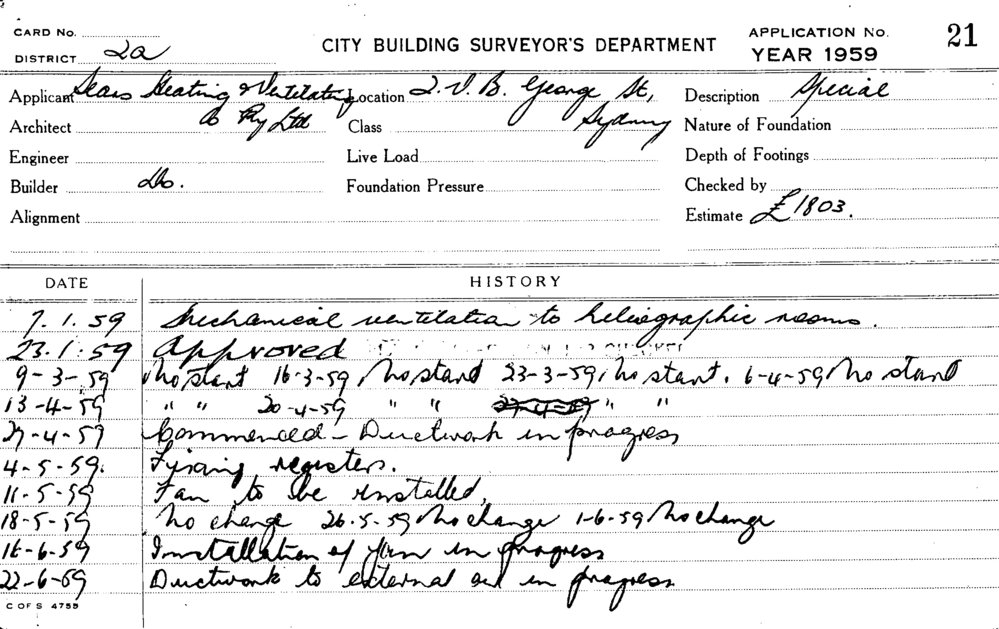 CARD No.
DISTRICT 2a
CITY BUILDING SURVEYOR'S DEPARTMENT
APPLICATION No. 21
YEAR 1959
Applicant Sears Heating & Ventilating Co Pty Ltd
Location Q.V.B. George St, Sydney
Description Special
Architect
Class
Nature of Foundation
Engineer
Live Load
Depth of Footings
Builder Do.
Foundation Pressure
Checked by
Alignment
Estimate £1803.
DATE HISTORY
7.1.59 Mechanical ventilation to heliographic rooms.
23.1.59 Approved
9-3-59 No start 16-3-59, No start 23-3-59, No start. 6-4-59 No start
13-4-59 " " 20-4-59 " " " "
27-4-59 Commenced - Ductwork in progress
4-5-59. Fixing registers.
11-5-59 Fan to be installed.
18-5-59 No change 26-5-59 No change 1-6-59 No change
16-6-59 Installation of fan in progress
22-6-59 Ductwork to external in progress
C OF S 4755